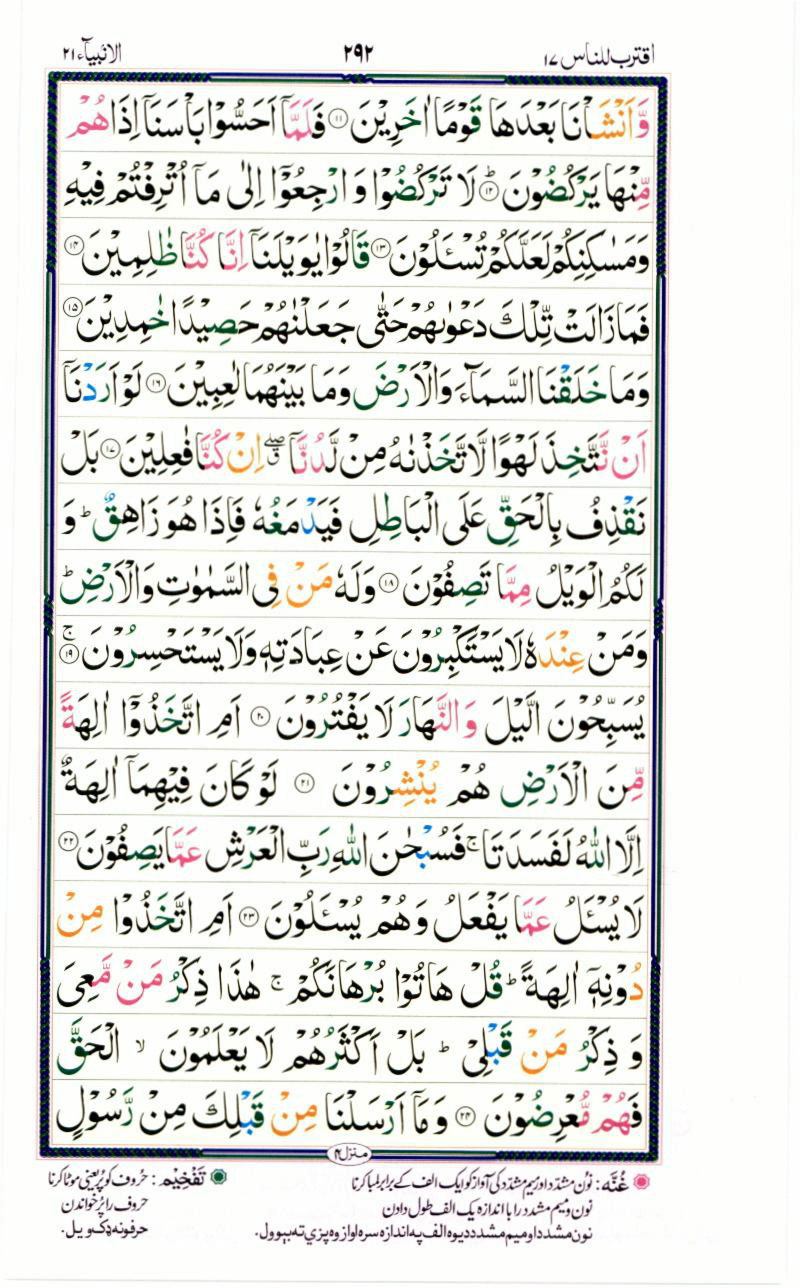 اقترب للناس ١٧
٢٩٢
الانبیآء ٢١
وَّاَنْشَاْنَا بَعْدَهَا قَوْمًا اٰخَرِيْنَ ۝١١ فَلَمَّاۤ اَحَسُّوْا بَاْسَنَاۤ اِذَا هُمْ
مِّنْهَا يَرْكُضُوْنَ ۝١٢ؕ لَا تَرْكُضُوْا وَ ارْجِعُوْۤا اِلٰى مَاۤ اُتْرِفْتُمْ فِيْهِ
وَمَسٰكِنِكُمْ لَعَلَّكُمْ تُسْـَٔلُوْنَ ۝١٣ قَالُوْا يٰوَيْلَنَاۤ اِنَّا كُنَّا ظٰلِمِيْنَ ۝١٤
فَمَا زَالَتْ تِّلْكَ دَعْوٰىهُمْ حَتّٰى جَعَلْنٰهُمْ حَصِيْدًا خٰمِدِيْنَ ۝١٥
وَمَا خَلَقْنَا السَّمَآءَ وَالْاَرْضَ وَمَا بَيْنَهُمَا لٰعِبِيْنَ ۝١٦ لَوْ اَرَدْنَاۤ
اَنْ نَّتَّخِذَ لَهْوًا لَّاتَّخَذْنٰهُ مِنْ لَّدُنَّاۤ ۖۗ اِنْ كُنَّا فٰعِلِيْنَ ۝١٧ بَلْ
نَقْذِفُ بِالْحَقِّ عَلَى الْبَاطِلِ فَيَدْمَغُهٗ فَاِذَا هُوَ زَاهِقٌ ؕ وَ
لَكُمُ الْوَيْلُ مِمَّا تَصِفُوْنَ ۝١٨ وَلَهٗ مَنْ فِى السَّمٰوٰتِ وَالْاَرْضِ ؕ
وَمَنْ عِنْدَهٗ لَا يَسْتَكْبِرُوْنَ عَنْ عِبَادَتِهٖ وَلَا يَسْتَحْسِرُوْنَ ۝١٩ۚ
يُسَبِّحُوْنَ الَّيْلَ وَالنَّهَارَ لَا يَفْتُرُوْنَ ۝٢٠ اَمِ اتَّخَذُوْۤا اٰلِهَةً
مِّنَ الْاَرْضِ هُمْ يُنْشِرُوْنَ ۝٢١ لَوْ كَانَ فِيْهِمَاۤ اٰلِهَةٌ
اِلَّا اللّٰهُ لَفَسَدَتَا ۚ فَسُبْحٰنَ اللّٰهِ رَبِّ الْعَرْشِ عَمَّا يَصِفُوْنَ ۝٢٢
لَا يُسْـَٔلُ عَمَّا يَفْعَلُ وَهُمْ يُسْـَٔلُوْنَ ۝٢٣ اَمِ اتَّخَذُوْا مِنْ
دُوْنِهٖۤ اٰلِهَةً ؕ قُلْ هَاتُوْا بُرْهَانَكُمْ ۚ هٰذَا ذِكْرُ مَنْ مَّعِىَ
وَ ذِكْرُ مَنْ قَبْلِىْ ؕ بَلْ اَكْثَرُهُمْ لَا يَعْلَمُوْنَ ۙ الْحَقَّ
فَهُمْ مُّعْرِضُوْنَ ۝٢٤ وَمَاۤ اَرْسَلْنَا مِنْ قَبْلِكَ مِنْ رَّسُوْلٍ
منزل ٤
غُنَّه: نون مشدد اور میم مشدد کی آواز کو ایک الف کے برابر لمبا کرنا
نون و میم مشدد را با اندازہ یک الف طول دادن
نون مشدد او میم مشدد دیوہ الف په اندازہ سرہ اواز وہ پزې ته بېوول.
تَفْخِیْم: حروف کو پُر یعنی موٹا کرنا
حروف را پُر خواندن
حرفونه ډک ویل.